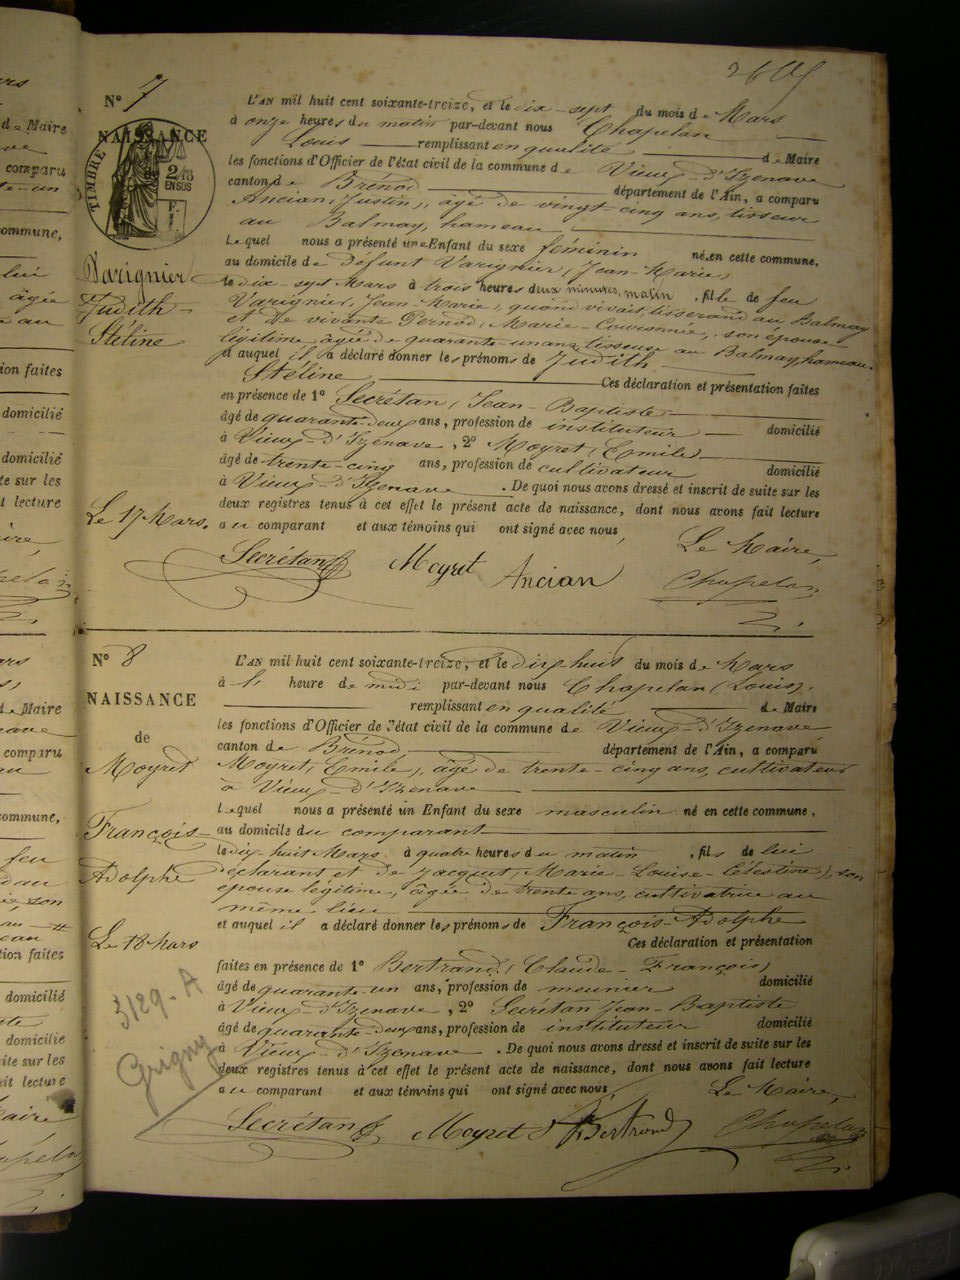 N° 7
NAISSANCE
TIMBRE
2/10
EN SUS
Varignier
Judith-
Stéline
Le 17 Mars.
L'AN mil huit cent soixante-treize, et le dix-sept du mois de Mars
à onze heures du matin par-devant nous Chapelan
Louis remplissant en qualité de Maire
les fonctions d'Officier de l'état civil de la commune de Vieux-d'Izenave
canton de Brénod département de l'Ain, a comparu
Ancian, (Justin), âgé de vingt-cinq ans, tisseur
au Balmay, hameau
Lequel nous a présenté une Enfant du sexe féminin née en cette commune,
au domicile de Défunt Varignier, (Jean-Marie)
le dix-sept Mars à trois heures deux minutes, matin, fille de feu
Varignier, Jean-Marie, quand vivait, tisserand au Balmay
et de vivante Pernod, Marie-Couronnée, son épouse
légitime, âgée de quarante-un ans, tisseuse au Balmay, hameau.
et auquel il a déclaré donner les prénoms de Judith
Stéline Ces déclaration et présentation faites
en présence de 1° Secrétan, Jean-Baptiste
âgé de quarante-deux ans, profession de instituteur domicilié
à Vieux-d'Izenave, 2° Moyret, (Emile)
âgé de trente-cinq ans, profession de cultivateur domicilié
à Vieux-d'Izenave. De quoi nous avons dressé et inscrit de suite sur les
deux registres tenus à cet effet le présent acte de naissance, dont nous avons fait lecture
au comparant et aux témoins qui ont signé avec nous,
Le Maire,
Secrétan Moyret Ancian Chapelan
N° 8
NAISSANCE
de
Moyret
François-
Adolphe
Le 18 Mars
3129-A
Grigny
L'AN mil huit cent soixante-treize, et le dix-huit du mois de Mars
à l' heure de midi par-devant nous Chapelan (Louis),
remplissant en qualité de Maire
les fonctions d'Officier de l'état civil de la commune de Vieux-d'Izenave
canton de Brénod département de l'Ain, a comparu
Moyret, Emile), âgé de trente-cinq ans, cultivateur
à Vieux-d'Izenave
lequel nous a présenté un Enfant du sexe masculin né en cette commune,
au domicile du comparant
le dix-huit Mars à quatre heures du matin, fils de lui
déclarant et de Jacquet, Marie-Louise-Célestine), son
épouse légitime, âgée de trente ans, cultivatrice au
même lieu
et auquel il a déclaré donner les prénoms de François-Adolphe
Ces déclaration et présentation
faites en présence de 1° Bertrand, (Claude-François)
âgé de quarante-un ans, profession de meunier domicilié
à Vieux-d'Izenave, 2° Secrétan Jean-Baptiste
âgé de quarante-deux ans, profession de instituteur domicilié
à Vieux-d'Izenave. De quoi nous avons dressé et inscrit de suite sur les
deux registres tenus à cet effet le présent acte de naissance, dont nous avons fait lecture
au comparant et aux témoins qui ont signé avec nous,
Le Maire,
Secrétan Moyret Bertrand Chapelan